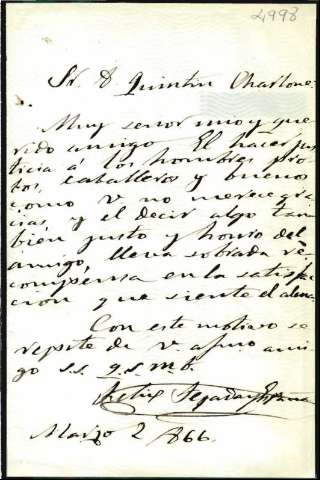 4998
Sr. D. Quintin Charlone
Muy señor mio y que
rido amigo El hacer jus
ticia á los hombres pro
bos, caballeros y buenos
como V. no merece gra
cias, y el decir algo tam
bién justo y honroso del
amigo, lleva sobrada re
compensa en la satisfac
cion que siente el alma.
Con este motivo se
repite de V. afmo ami
go s.s. q.s.m.b.
Felix Tejada y España
Marzo 2/866.